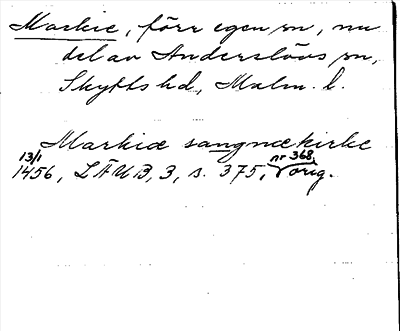 Markie, förr egen sn, nu
del av Anderslövs sn,
Skytts hd, Malm. l.
Markiæ sangnækirke
13/1 nr 368,
1456, LÄUB, 3, s. 375, orig.